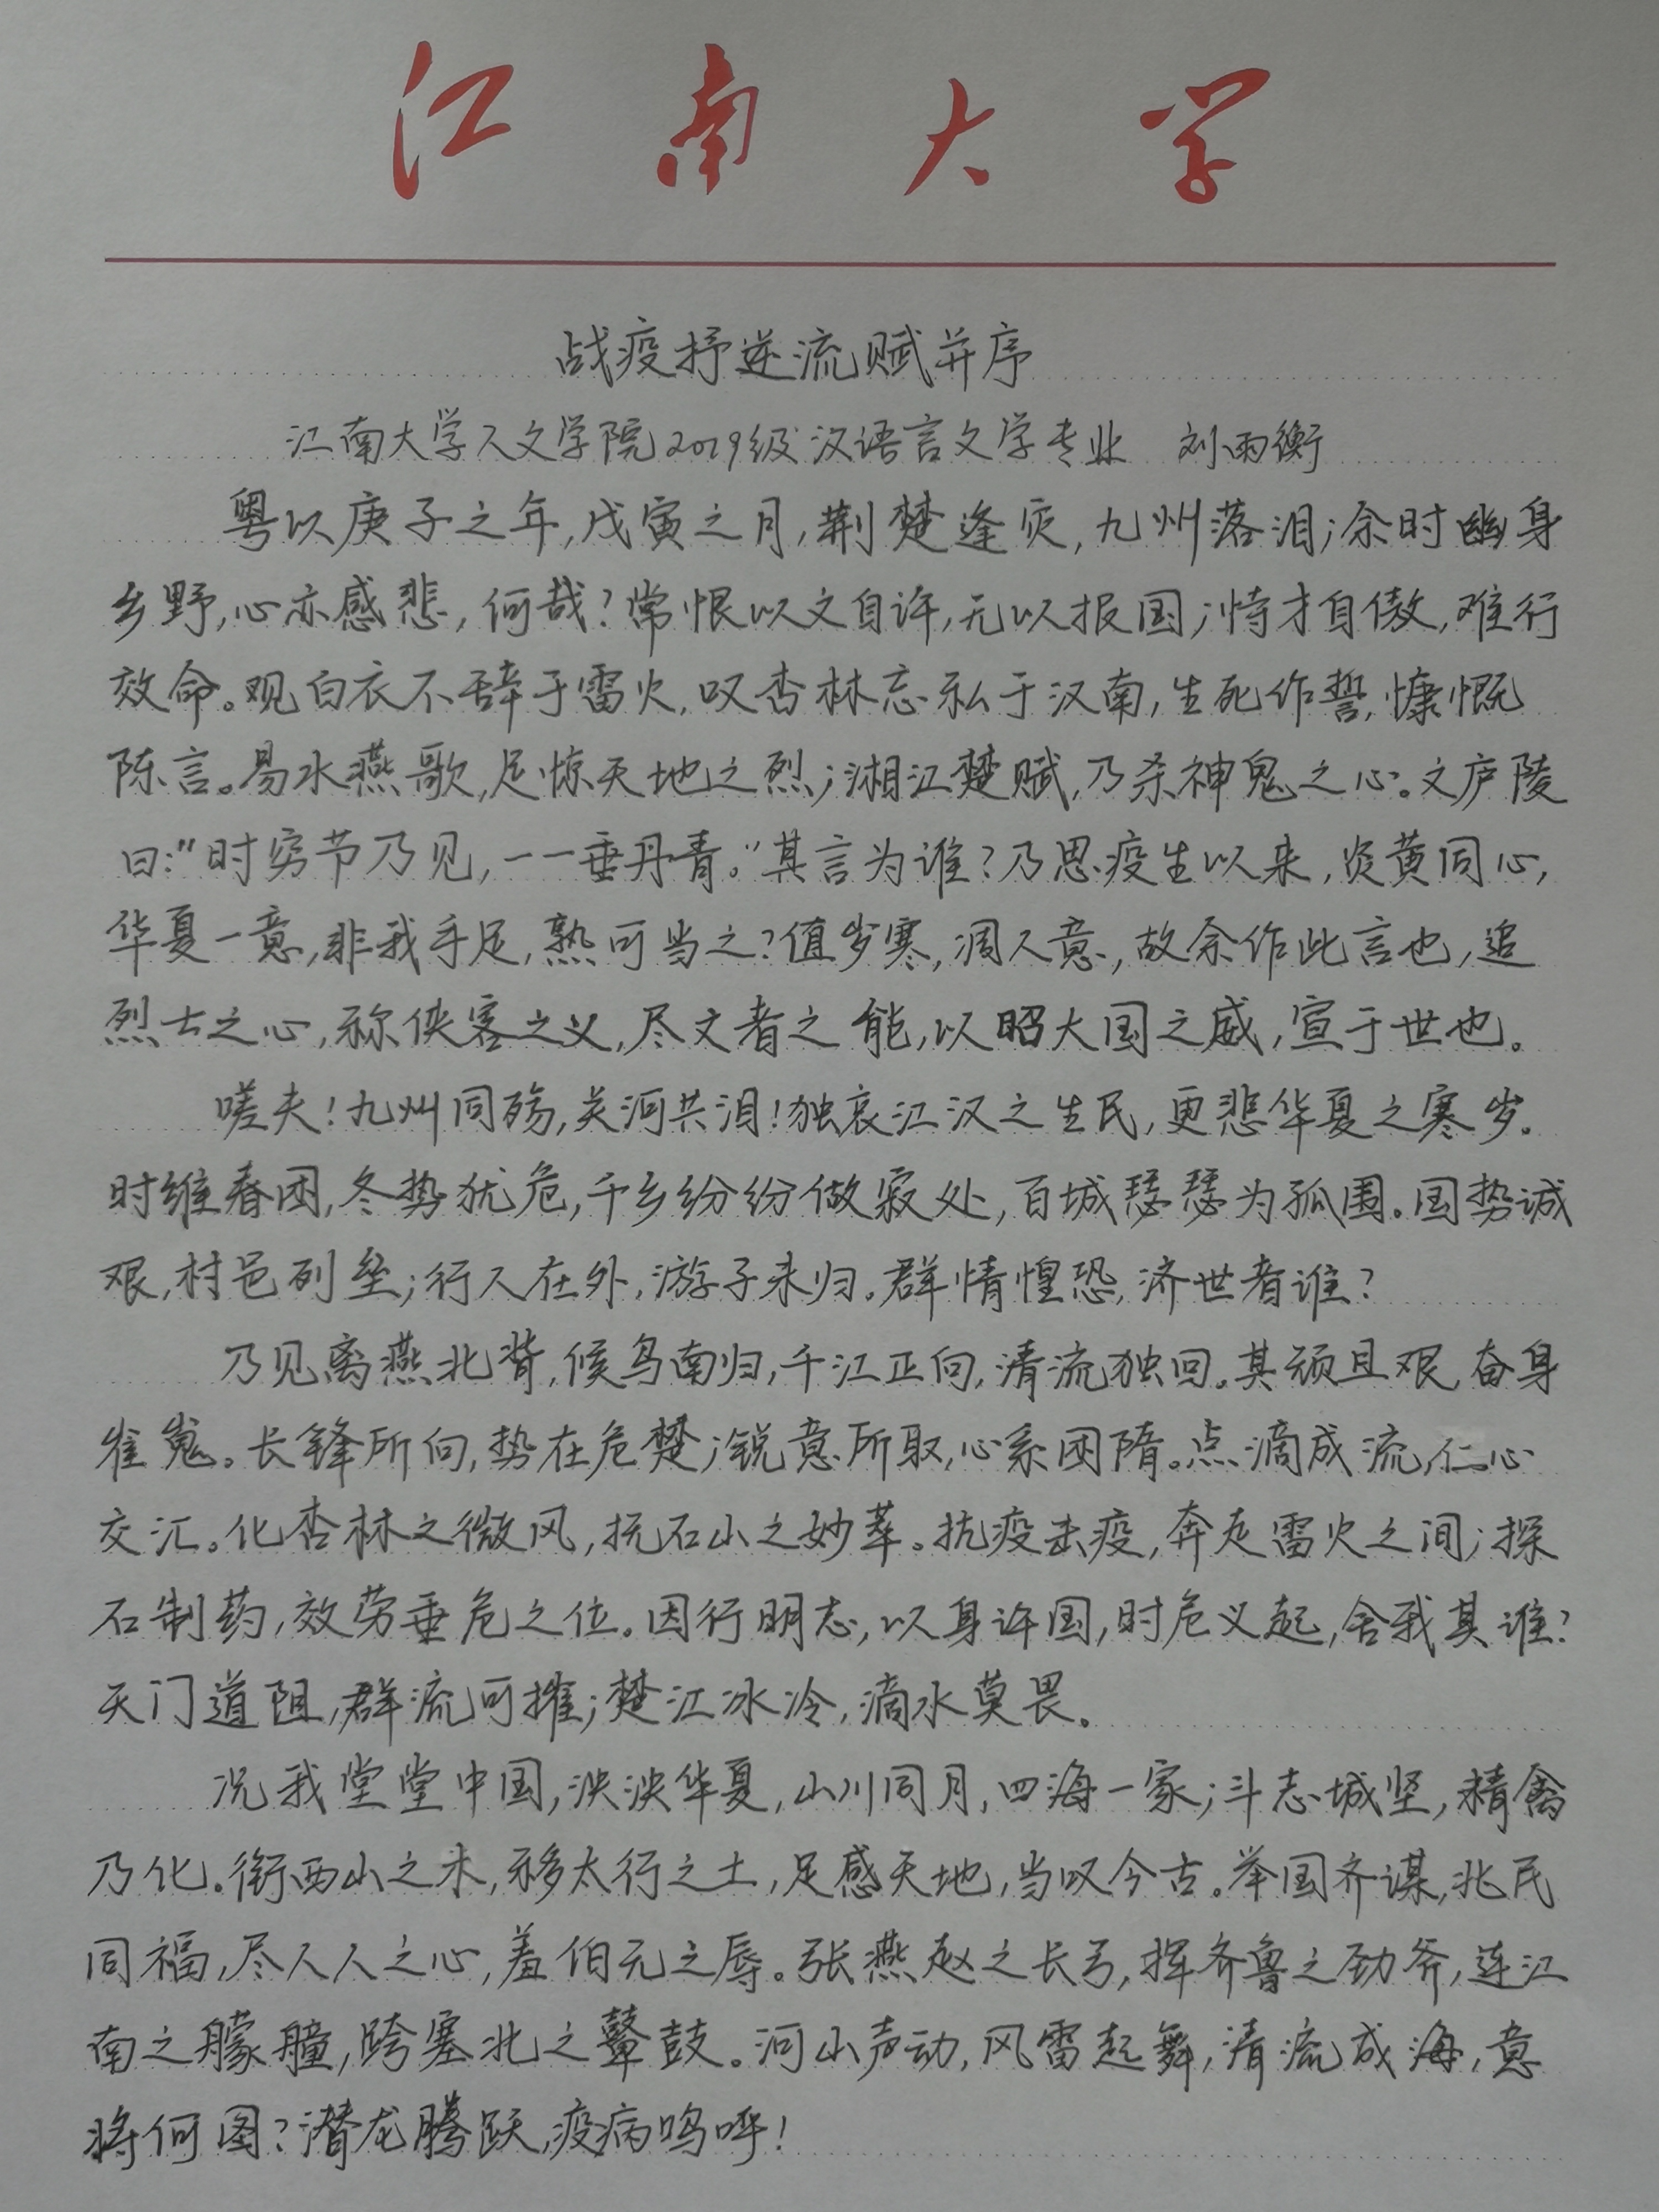 江南大学
战疫抒逆流赋并序
江南大学人文学院2019级汉语言文学专业 刘雨衡
粤以庚子之年,戊寅之月,荆楚逢灾,九州落泪;余时幽身
乡野,心亦感悲,何哉?常恨以文自许,无以报国;恃才自傲,难行
效命。观白衣不辞于雷火,叹杏林忘私于汉南,生死作誓,慷慨
陈言。易水燕歌,足惊天地之烈;湘江楚赋,乃杀神鬼之心。文庐陵
曰:“时穷节乃见,一一垂丹青。”其言为谁?乃思疫生以来,炎黄同心,
华夏一意,非我手足,熟可当之?值岁寒,凋人意,故余作此言也,追
烈士之心,称侠客之义,尽文者之能,以昭大国之威,宣于世也。
嗟夫!九州同殇,关河共泪!独哀江汉之生民,更悲华夏之寒岁。
时维春困,冬势犹危,千乡纷纷做寂处,百城瑟瑟为孤围。国势诚
艰,村邑列垒;行人在外,游子未归。群情惶恐,济世者谁?
乃见离燕北背,候鸟南归,千江正向,清流独回。其顽且艰,奋身
崔嵬。长锋所向,势在危楚;锐意所取,心系困隋。点滴成流,仁心
交汇。化杏林之微风,抚石山之妙萃。抗疫击疫,奔走雷火之间;探
石制药,效劳垂危之位。因行明志,以身许国,时危义起,舍我其谁?
天门道阻,群流可摧;楚江冰冷,滴水莫畏。
况我堂堂中国,泱泱华夏,山川同月,四海一家;斗志城坚,精禽
乃化。衔西山之木,移太行之土,足感天地,当叹今古。举国齐谋,兆民
同福,尽人人之心,羞伯元之辱。张燕赵之长弓,挥齐鲁之劲斧,连江
南之艨艟,跨塞北之鼙鼓。河山声动,风雷起舞,清流成海,意
将何图?潜龙腾跃,疫病呜呼!